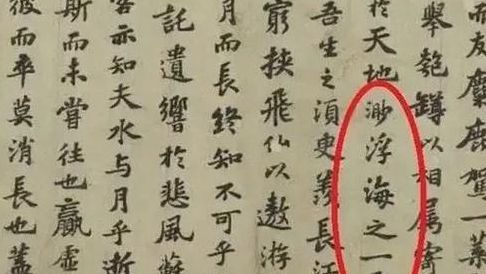 而友麋鹿駕一葉
舉匏罇以相属寄
於天地渺浮海之一
吾生之湏臾羨長江
窮挾飛仙以遨游
月而長終知不可乎
託遺響於悲風蘇
客亦知夫水与月乎逝
斯而未嘗往也贏虛
彼而卒莫消長也蓋